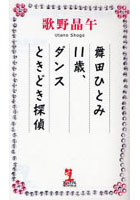 歌野晶午
Utano Shogo
舞田ひとみ
11歳、
ダンス
ときどき探偵